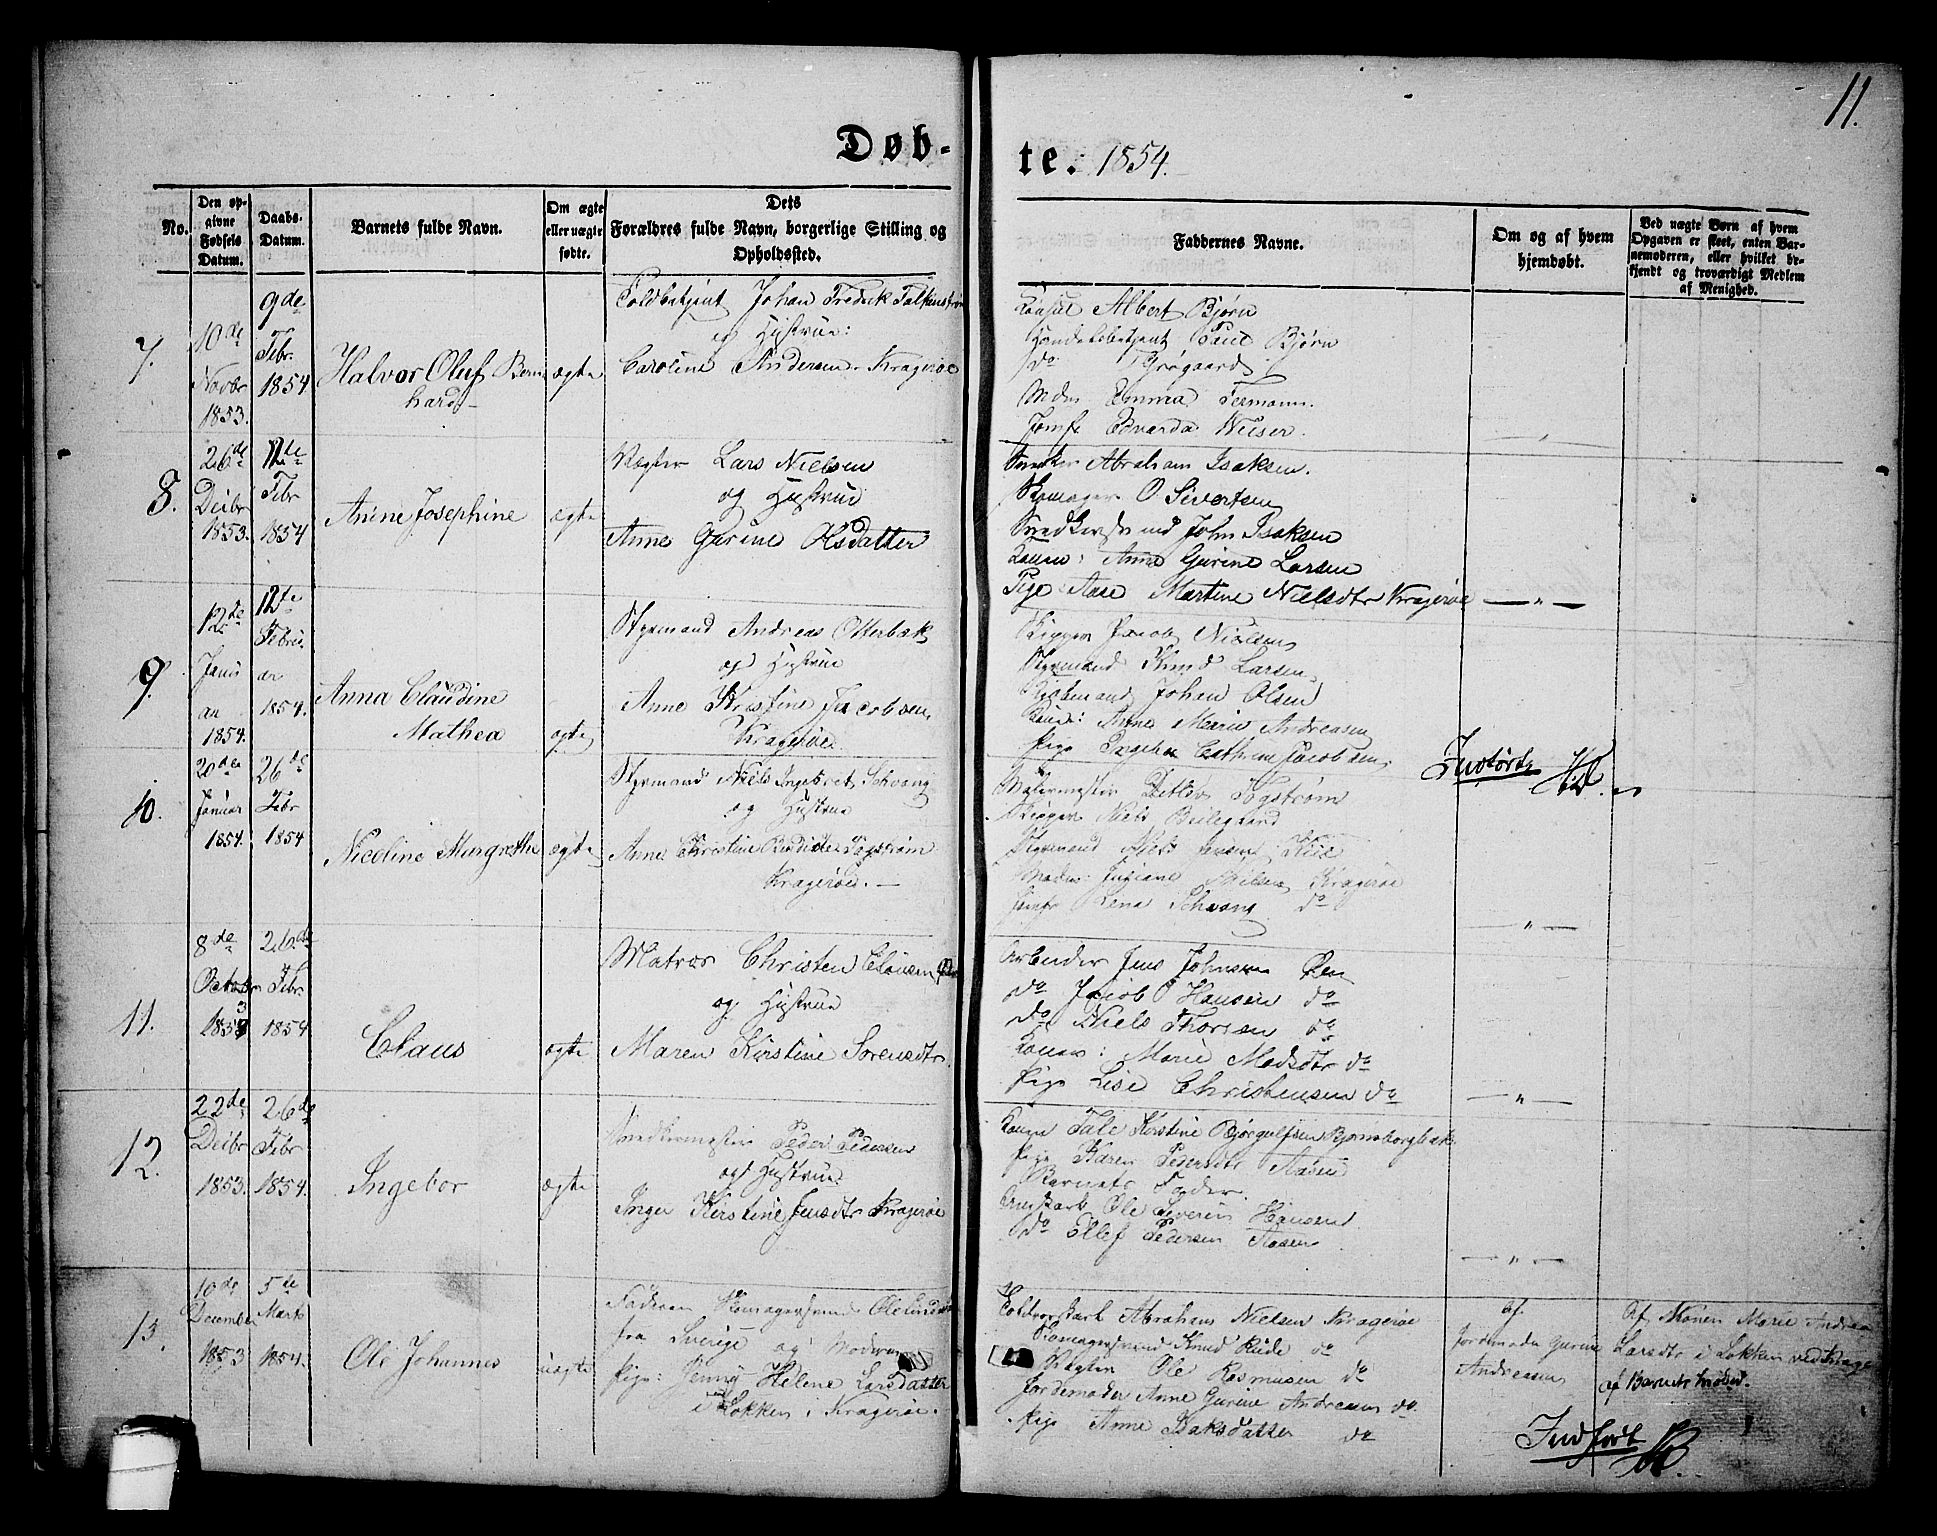 11.
Døb-
te. 1854.
No.
Den op-
givne
Fødsels
Datum.
Daabs-
Datum.
Barnets fulde Navn.
Om ægte
eller uægte
fødte.
Dets
Forældres fulde Navn, borgerlige Stilling og
Opholdssted.
Faddernes Navne.
Om og af hvem
hjemdøbt.
Ved uægte Børn af hvem
Opgaven er skeet, enten Bar-
nemoderen, eller hvilket be-
kjendt og troværdigt Medlem
af Menighed.
7.
10de
Novbr
1853.
9de
Febr.
1854
Halvor Oluf Bern
hard
ægte
Toldbetjent Johan Fredrik
og Hustrue:
Caroline Andersen. Kragerøe
Consul Albert Bjørn
Paul Bjørn
do
Emma
Jomfr Edvarda
8.
26de
Decbr
1853.
12te
Febr
1854
Anine Josephine
ægte
Vægter Lars Nielsen
og Hustrue
Anne Gurine Olsdatter
Abraham Isaksen.
Skomager O. Sivertsen
Snedkersvend John Isaksen
Konen: Anne Gurine Larsen
Pige Aase Martine Nielsdtr Kragerøe
9.
12te
Janu
ar
1854.
12te
Febru
ar
1854.
Anna Claudine
Mathea
ægte
Styrmand Andreas Otterbek
og Hustrue
Anne Kirstine Jacobsen,
Kragerøe.
Skipper Jacob Nielsen
Styrmand Knud Larsen
Johan Olsen
Konen: Anne Marie Andreasen
Pige Cathrine Jacobsen,
Indførte
10.
20de
Januar
1854.
26de
Febr
1854
Nicoline Margrethe
ægte
Styrmand Niels Schwang
og Hustrue
Anne Christine
Kragerøe.
Malermester Ditlev
Skipper Niels
Styrmand Niels
Juliane Nilsen Kragerøe
Jomfr Lena Schwang do
11.
8de
October
3
1853
26de
Febr.
1854.
Claus
ægte
Matros Christen Clausen
og Hustrue
Maren Kirstine Sørensdtr.
Arbeider Jens Johnsen Øen
do Jacob O Hansen do
do Niels Thorsen do
Konen: Marie Madsdtr do
Pige Lise Christensen do
12.
22de
Decbr
1853.
26de
Febr
1854.
Ingebor
ægte
Snedkermester Peder Pedersen
og Hustrue
Inger Kirstine Jensdtr Kragerøe
Konen Tale Kirstine Bjørgulfsen
Pige Karen Pedersdtr Aasen
Barnets Fader.
Ole Severin Hansen
do Ellef Pedersen Aasen
13.
10de
December
1853
5te
Marts
1854.
Ole Johannes
uægte
Faderen Skomagersvend
fra Sverige og Moderen
Pige: Jenny Helene Larsdatter
Løkken i Kragerøe.
Abraham Nielsen Kragerøe
Skomagersvend Knud Rüde do
Vægter Ole Rasmusen do
Jordemoder Anne Gurine Andreasen do.
Pige Anne Isaksdatter do
af
Jordemoder Gurine
Andreasen
Af Konen Marie
Larsdtr i Løkken ved
af Barnets
Indført